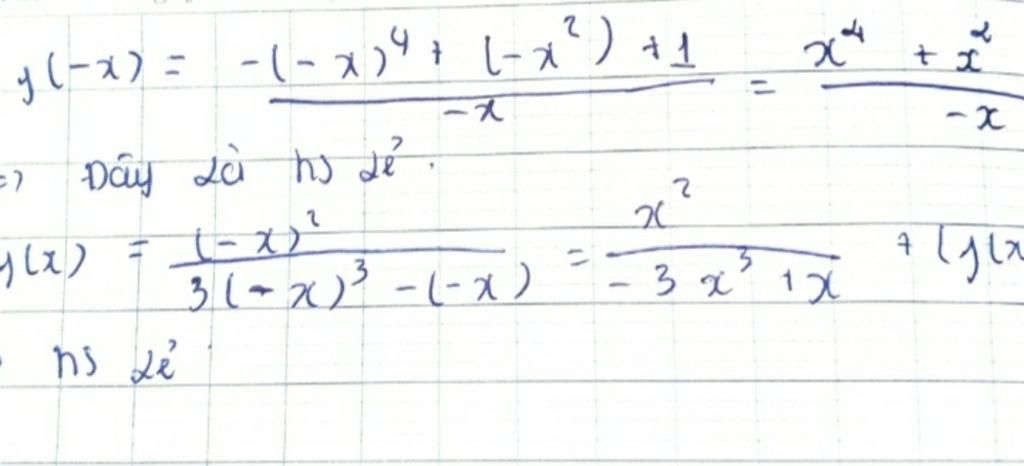 y(-x) = \frac{-(-x)^4 + (-x^2) + 1}{-x} = \frac{x^4 + x^2}{-x}
=> Đây là hs lẻ.
y(x) = \frac{(-x)^2}{3(-x)^3 - (-x)} = \frac{x^2}{-3x^3 + x} + (y(x
hs lẻ.